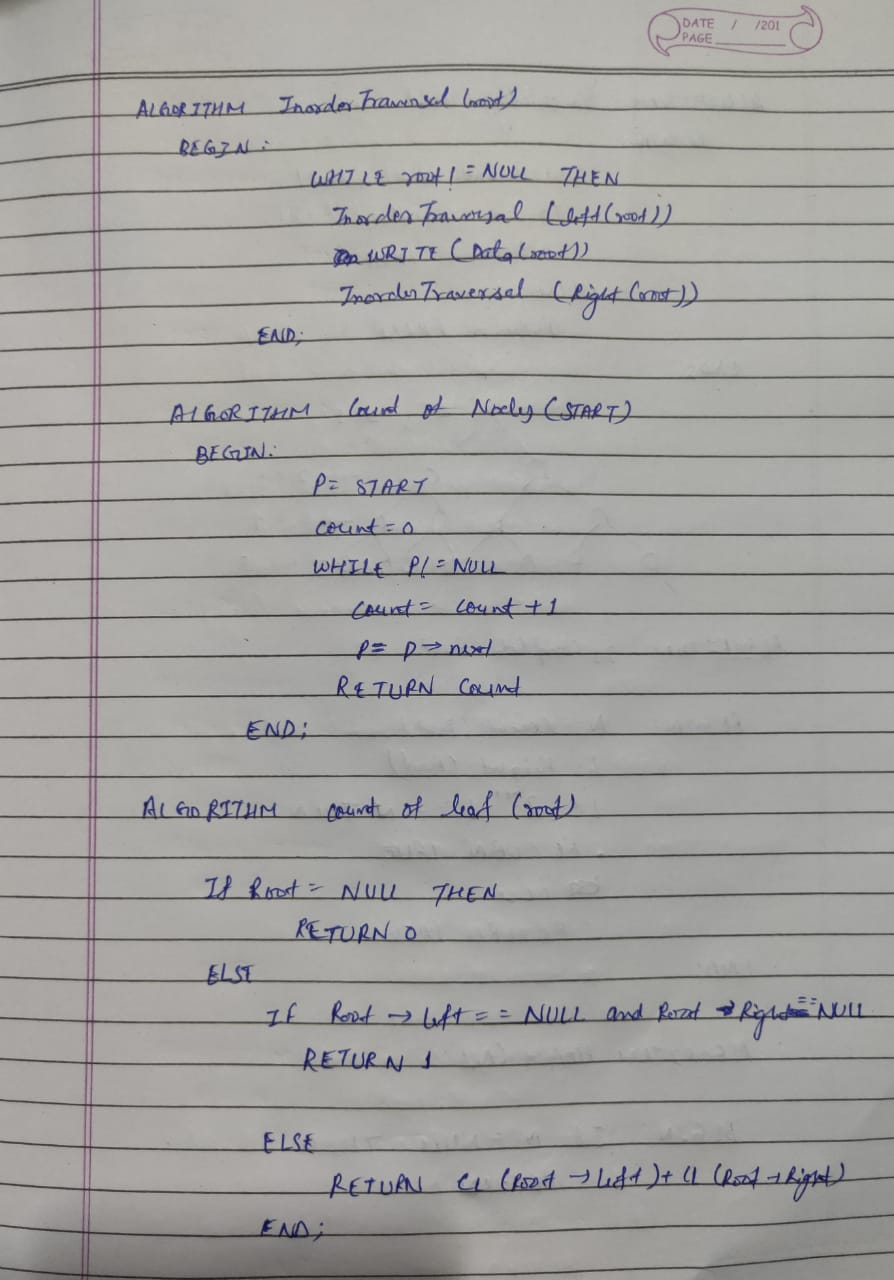 DATE / /201
PAGE
ALGORITHM InorderTraversal (root)
BEGIN:
WHILE root != NULL THEN
InorderTraversal (left(root))
WRITE (Data(root))
InorderTraversal (Right(root))
END;
ALGORITHM Count of Nodes (START)
BEGIN:
P = START
count = 0
WHILE P != NULL
count = count + 1
P = P → next
RETURN Count
END;
ALGORITHM count of leaf (root)
If Root = NULL THEN
RETURN 0
ELSE
If Root → left == NULL and Root → Right == NULL
RETURN 1
ELSE
RETURN CL (Root → Left) + CL (Root → Right)
END;